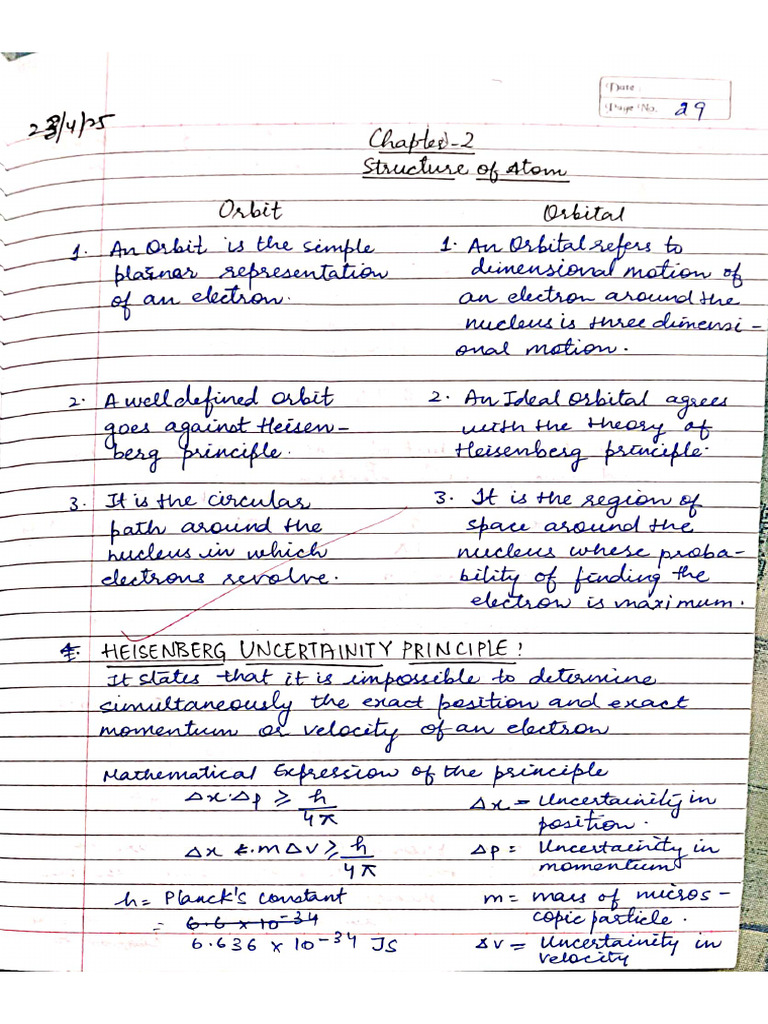 Date :
Page No. 29
23/4/25
Chapter-2
Structure of Atom
Orbit
1. An Orbit is the simple
planar representation
of an electron.
2. A well defined Orbit
goes against Heisen-
berg principle.
3. It is the circular
path around the
nucleus in which
electrons revolve.
Orbital
1. An Orbital refers to
dimensional motion of
an electron around the
nucleus is three dimensi-
onal motion.
2. An Ideal Orbital agrees
with the theory of
Heisenberg principle.
3. It is the region of
space around the
nucleus whose proba-
bility of finding the
electron is maximum.
HEISENBERG UNCERTAINITY PRINCIPLE:
It states that it is impossible to determine
simultaneously the exact position and exact
momentum or velocity of an electron
Mathematical Expression of the principle
Δx.Δp ≥ h/4π
Δx .mΔv ≥ h/4π
h = Planck's constant
= 6.6 x 10⁻³⁴
6.636 x 10⁻³⁴ JS
Δx = Uncertainity in
position.
Δp = Uncertainity in
momentum
m = mass of micros-
copic particle.
Δv = Uncertainity in
velocity